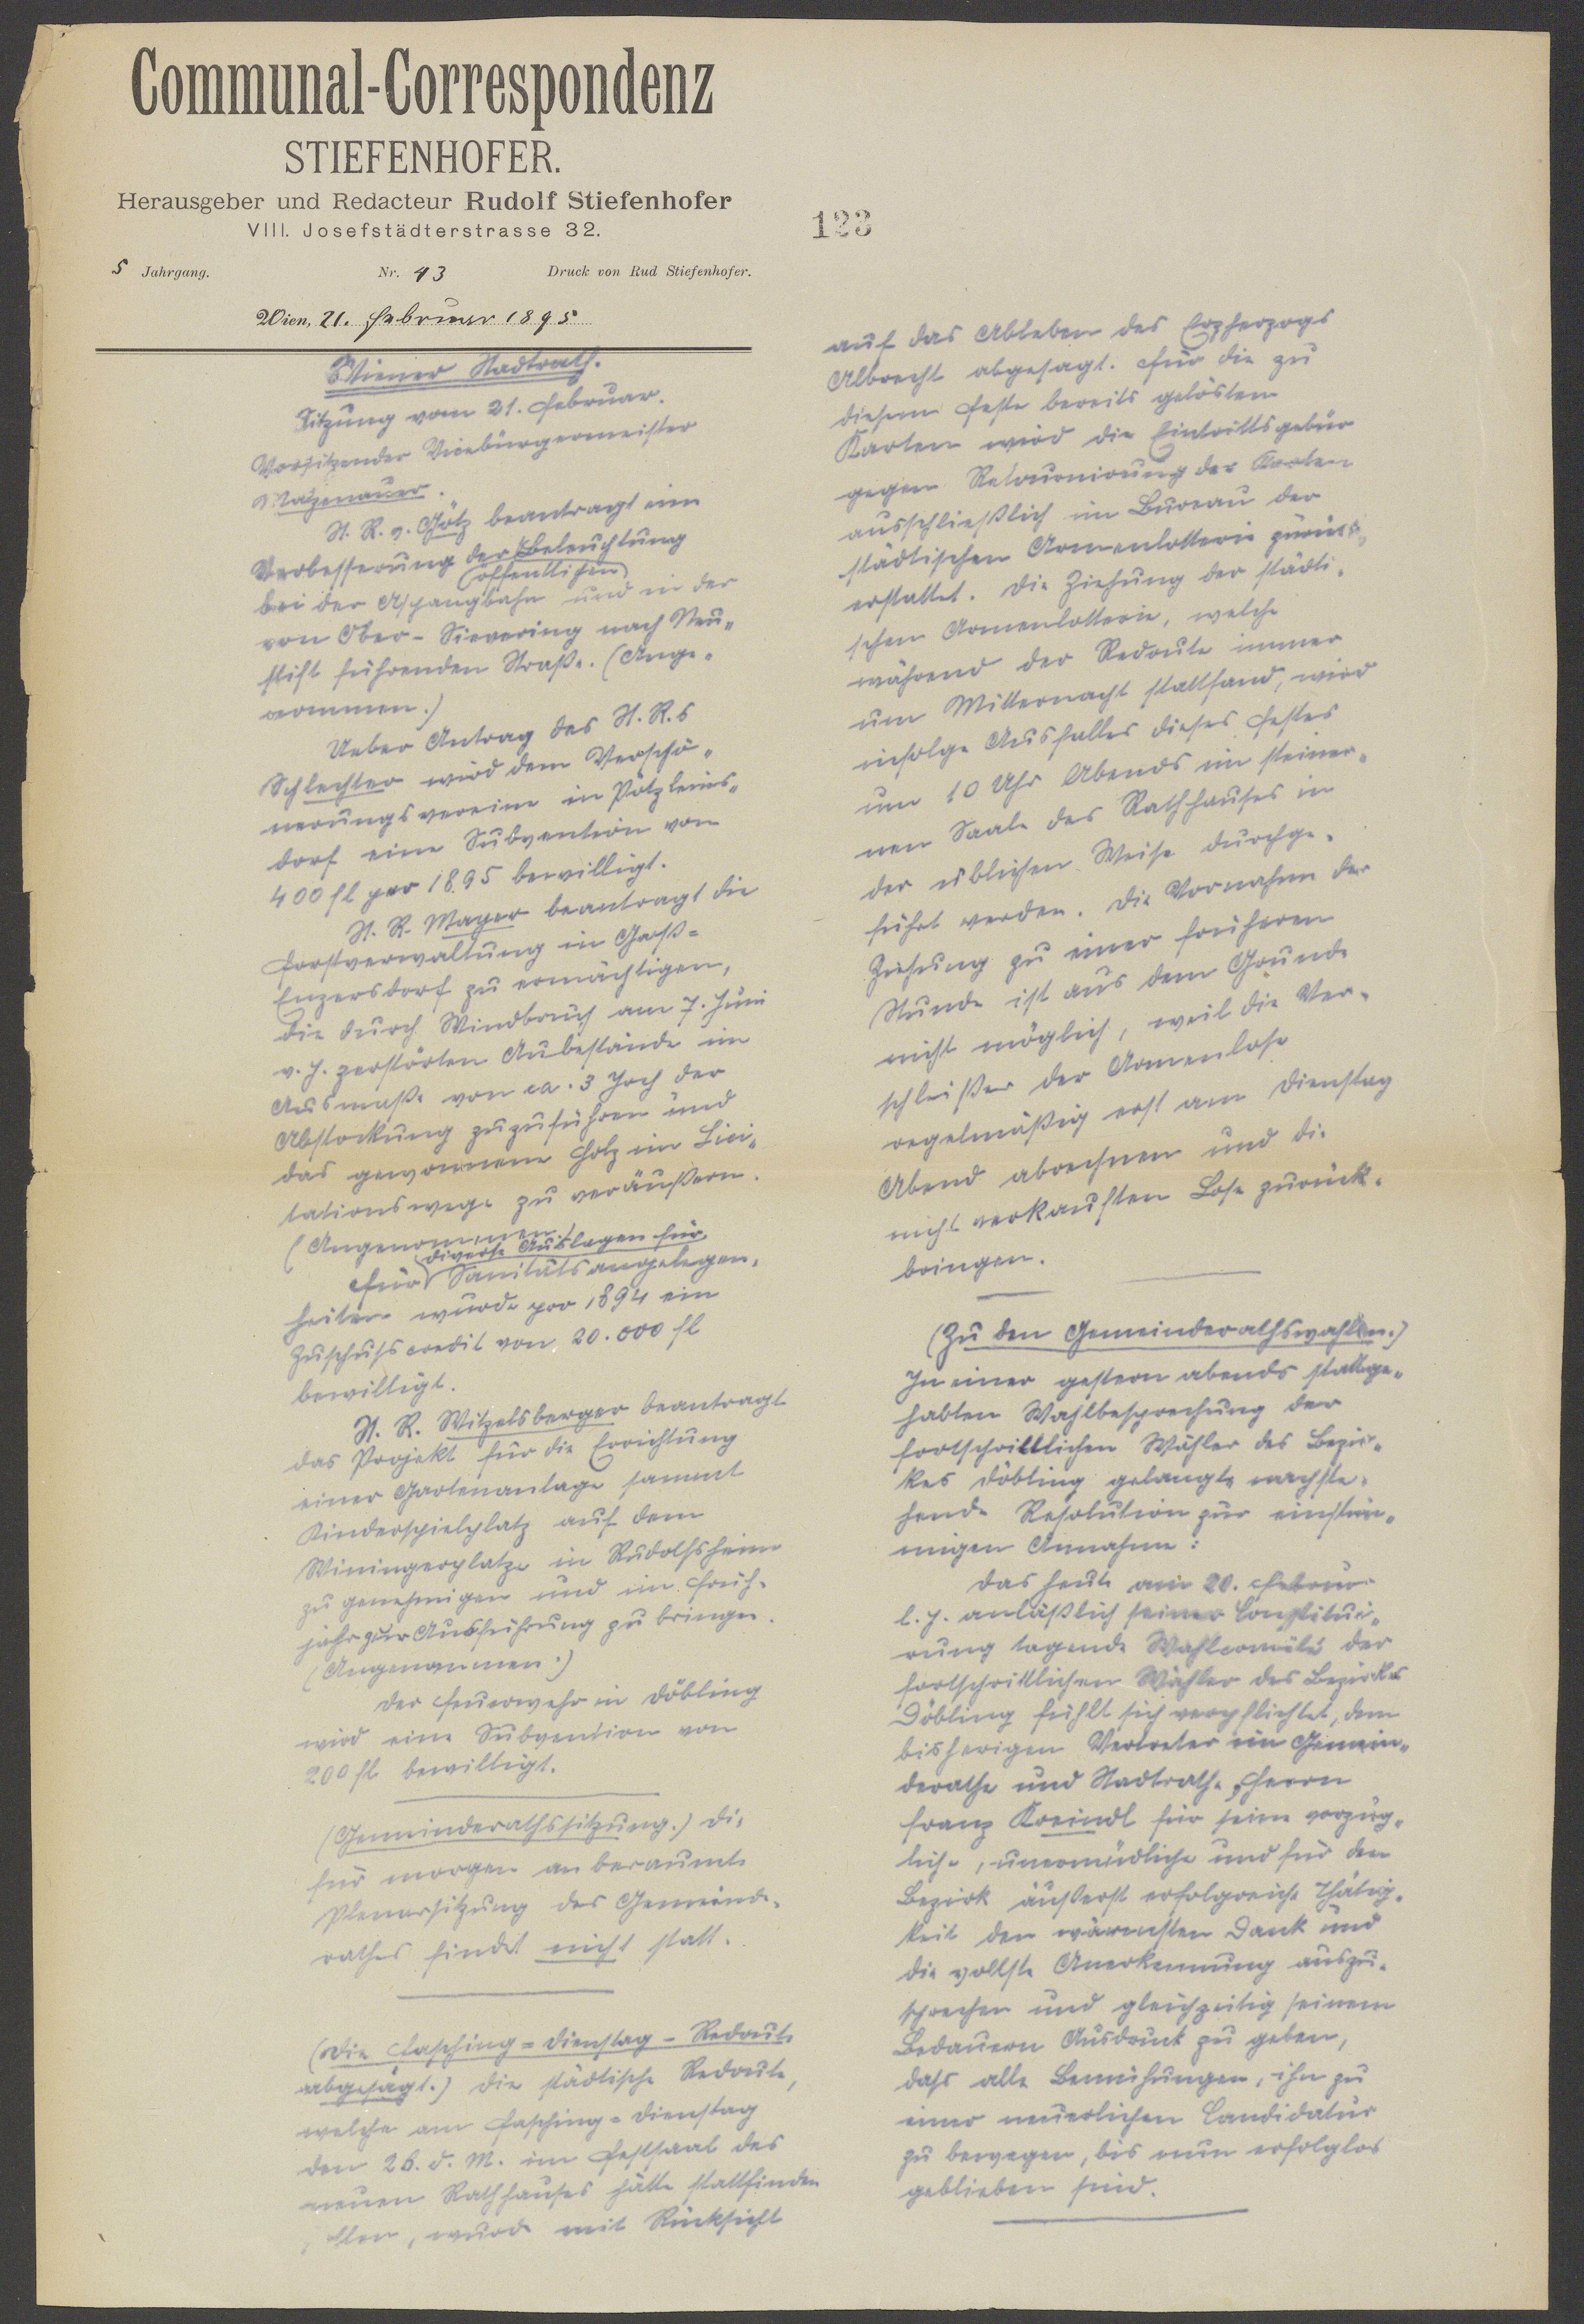 Communal-Correspondenz
STIEFENHOFER.
Herausgeber und Redacteur Rudolf Stiefenhofer
VIII. Josefstädterstrasse 32.
5 Jahrgang. Nr. 43 Druck von Rud Stiefenhofer.
Wien, 21. Februar 1895
Wiener Stadtrath.
Sitzung vom 21. Februar.
Vorsitzender Vicebürgermeister
Matzenauer.
St. R. v. Götz beantragt eine
Verbesserung der öffentlichen Beleuchtung
bei der Aspangbahn und in der
von Ober-Sievering nach Neu„
stift führenden Straße. (Ange„
nommen.)
Ueber Antrag des St. R.s
Schlechter wird dem Verschö„
nerungsvereine in Pötzleins„
dorf eine Subvention von
400 fl per 1895 bewilligt.
St. R. Mayer beantragt die
Forstverwaltung in Groß=
Enzersdorf zu ermächtigen,
die durch Windbruch am 7. Juni
v. J. zerstörten Aubestände im
Ausmaße von ca. 3 Joch der
Abstockung zuzuführen und
das gewonnene Holz im Lici„
tationswege zu veräußern.
(Angenommen.)
Für diverse Auslagen für
Sanitätsangelegen„
heiten wurde pro 1894 ein
Zuschusscredit von 20.000 fl
bewilligt.
St. R. Witzelsberger beantragt
das Projekt für die Errichtung
einer Gartenanlage sammt
Kinderspielplatz auf dem
Winingerplatze in Rudolfsheim
zu genehmigen und im Früh„
jahr zur Ausführung zu bringen.
(Angenommen.)
Der Feuerwehr in Döbling
wird eine Subvention von
200 fl bewilligt.
(Gemeinderathssitzung.) Die
für morgen anberaumte
Plenarsitzung des Gemeinde„
rathes findet nicht statt.
(Die Fasching=Dienstag-Redoute
abgesagt.) Die städtische Redoute,
welche am Fasching=Dienstag
den 26. d. M. im Festsaal des
neuen Rathhauses hätte stattfinden
sollen, wurde mit Rücksicht
123
auf das Ableben des Erzherzogs
Albrecht abgesagt. Für die zu
diesem Feste bereits gelösten
Karten wird die Eintrittsgebür
gegen Retournirung der Karten
ausschließlich im Bureau der
städtischen Armenlotterie zurück
erstattet. Die Ziehung der städti„
schen Armenlotterie, welche
während der Redoute immer
um Mitternacht stattfand, wird
infolge Ausfalles dieses Festes
um 10 Uhr Abends im steiner„
nen Saale des Rathhauses in
der üblichen Weise durchge„
führt werden. Die Vornahme der
Ziehung zu einer früheren
Stunde ist aus dem Grunde
nicht möglich, weil die Ver„
schleißer der Armenlose
regelmäßig erst am Dienstag
Abend abrechnen und die
nicht verkauften Lose zurück„
bringen.
(Zu den Gemeinderathswahlen.)
In einer gestern abends stattge„
habten Wahlbesprechung der
fortschrittlichen Wähler des Bezir„
kes Döbling gelangte nachste„
hende Resolution zur einstim„
migen Annahme:
Das heute am 20. Februar
l. J. anläßlich seiner Constitui„
rung tagende Wahlcomité der
fortschrittlichen Wähler des Bezirkes
Döbling fühlt sich verpflichtet, dem
bisherigen Vertreter im Gemein„
derathe und Stadtrathe, Herrn
Franz Kreindl für seine vorzüg„
liche, unermüdliche und für den
Bezirk äußerst erfolgreiche Thätig„
keit den wärmsten Dank und
die vollste Anerkennung auszu„
sprechen und gleichzeitig seinem
Bedauern Ausdruck zu geben,
dass alle Bemühungen, ihn zu
einer neuerlichen Candidatur
zu bewegen, bis nun erfolglos
geblieben sind.